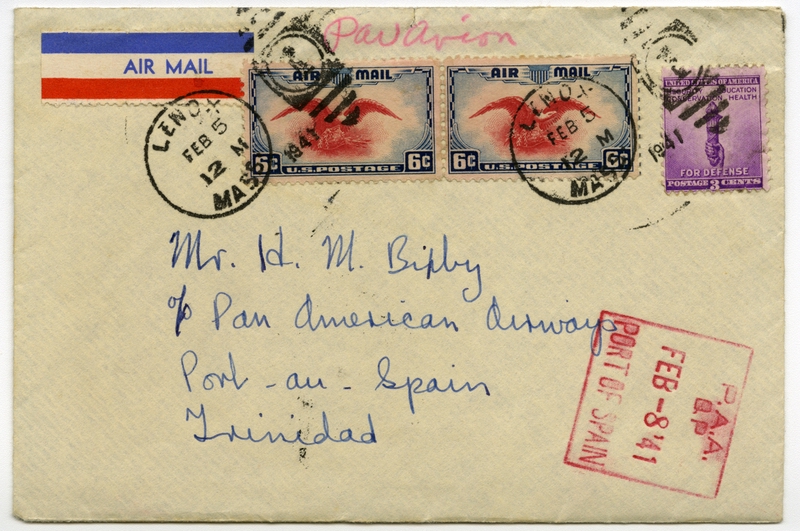 Par Avion
AIR MAIL
AIR MAIL
6¢ 6¢
U.S. POSTAGE
AIR MAIL
6¢ 6¢
U.S. POSTAGE
UNITED STATES OF AMERICA
EDUCATION
CONSERVATION HEALTH
FOR DEFENSE
POSTAGE 3 CENTS
LENOX
FEB 5
12 M
MASS
1941
LENOX
FEB 5
12 M
MASS
1941
Mr. H. M. Bixby
c/o Pan American Airways
Port-au-Spain
Trinidad
P.A.A.
FEB-8'41
PORT OF SPAIN